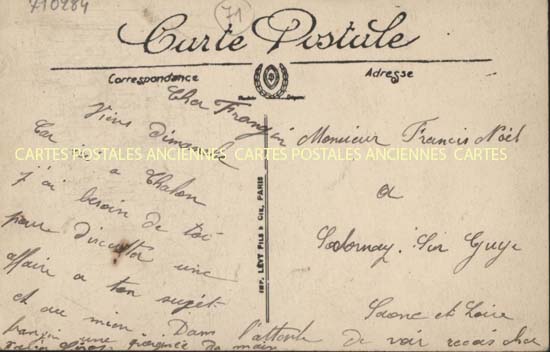 710284
71
Carte Postale
Correspondance
Adresse
Cher Françis
Viens dimanche
Car ici a Chalon
j'ai besoin de toi
pour discuter une
affaire a ton sujet
et au mien. Dans l'attente
de voir recois cher
françis une
poignée de main
IMP. LÉVY FILS & CIE, PARIS
Monsieur Francis Noël
a
Salornay. Sur Guye
Saone et Loire
CARTES POSTALES ANCIENNES CARTES POSTALES ANCIENNES CARTES